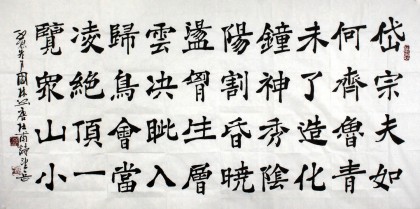 岱宗夫如
何齊魯青
未了造化
鐘神秀陰
陽割昏曉
盪胷生層
雲决眦入
歸鳥會當
凌絕頂一
覽眾山小
唐杜甫詩望岳